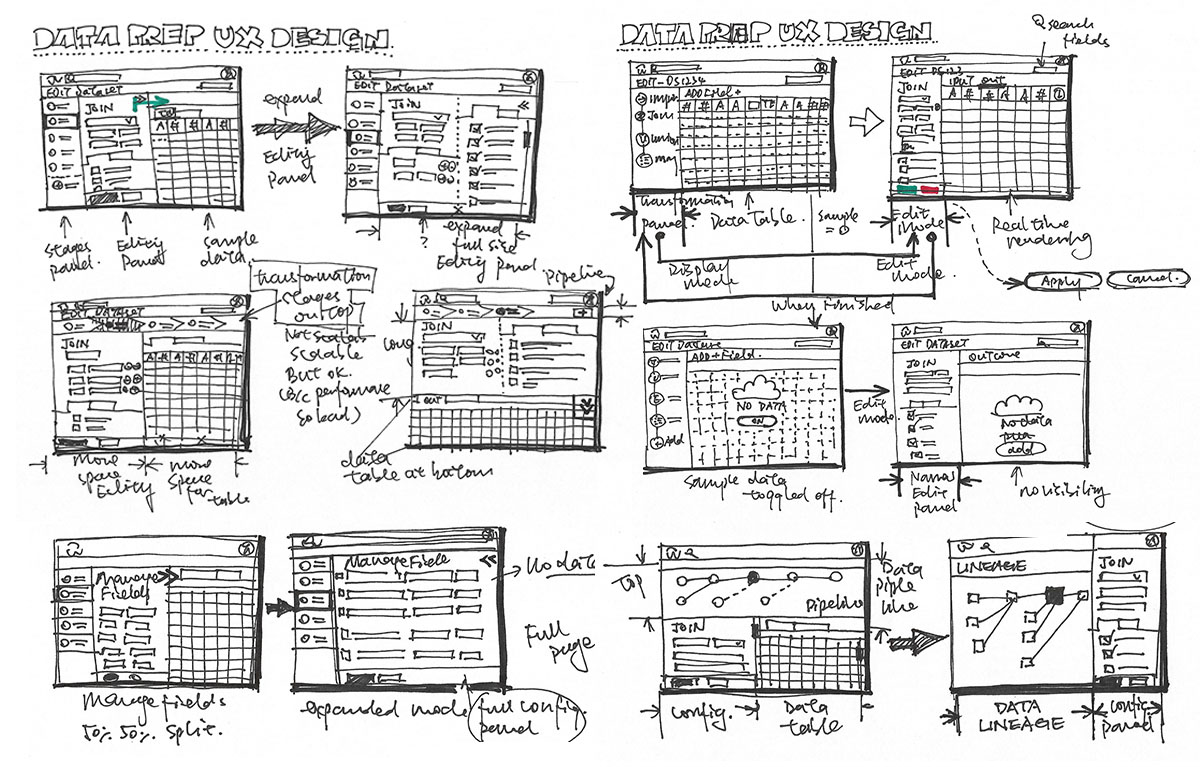 DATA PREP UX DESIGN
EDIT DATASET
JOIN
A # # A #
expand
Editing
panel
EDIT DATASET
JOIN
stages
panel.
Editing
panel
Sample
data.
?
expand
full size
Editing panel
transformation
stages
on top
Not
scalable
But ok.
(b/c performance
so bad)
EDIT DATASET
JOIN
More
space
Editing
more
space
for
table
Pipeline
JOIN
long
out
data
table at bottom
Manage
Fields
Manage fields
50% 50% split.
Manage Field
No data
Full
page
expanded mode
full config
panel
DATA PREP UX DESIGN
search
fields
EDIT-DS1234
ADD Col +
# # A A
Join
Union
EDIT DS123
JOIN
input out
transformation
panel
Data Table.
Sample
=
Edit
mode
Real time
rendering
Display
mode
Edit
mode.
Apply
Cancel.
When finished
ADD+Field.
NO DATA
ON
Add
Sample data
toggled off.
Edit
mode
EDIT DATASET
JOIN
outcome
No data
add
Narrow
Edit
panel
no visibility
Top
Pipeline
JOIN
Data
pipe
line
config.
Data
table
LINEAGE
JOIN
DATA
LINEAGE
config
panel